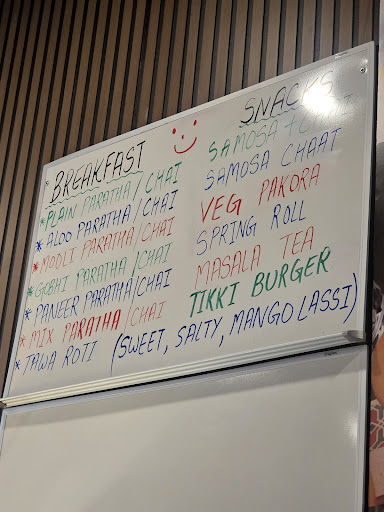 BREAKFAST
* PLAIN PARATHA / CHAI
* ALOO PARATHA / CHAI
* MOOLI PARATHA / CHAI
* GOBHI PARATHA / CHAI
* PANEER PARATHA / CHAI
* MIX PARATHA / CHAI
* TAWA ROTI
SNACKS
SAMOSA
SAMOSA CHAAT
VEG PAKORA
SPRING ROLL
MASALA TEA
TIKKI BURGER
(SWEET, SALTY, MANGO LASSI)